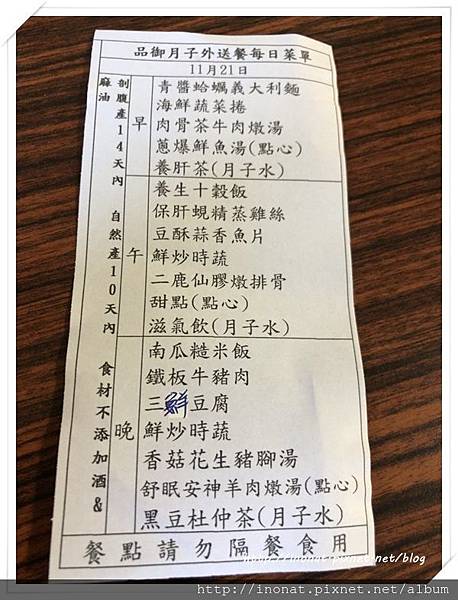 品御月子外送餐每日菜單
11月21日
剖腹產14天內 自然產10天內 食材不添加酒&
麻油
早
青醬蛤蠣義大利麵
海鮮蔬菜捲
肉骨茶牛肉燉湯
蔥爆鮮魚湯(點心)
養肝茶(月子水)
午
養生十穀飯
保肝蜆精蒸雞絲
豆酥蒜香魚片
鮮炒時蔬
二鹿仙膠燉排骨
甜點(點心)
滋氣飲(月子水)
晚
南瓜糙米飯
鐵板牛豬肉
三鮮豆腐
鮮炒時蔬
香菇花生豬腳湯
舒眠安神羊肉燉湯(點心)
黑豆杜仲茶(月子水)
餐點請勿隔餐食用
http://inonat.pixnet.net/blog
http://inonat.pixnet.net/album